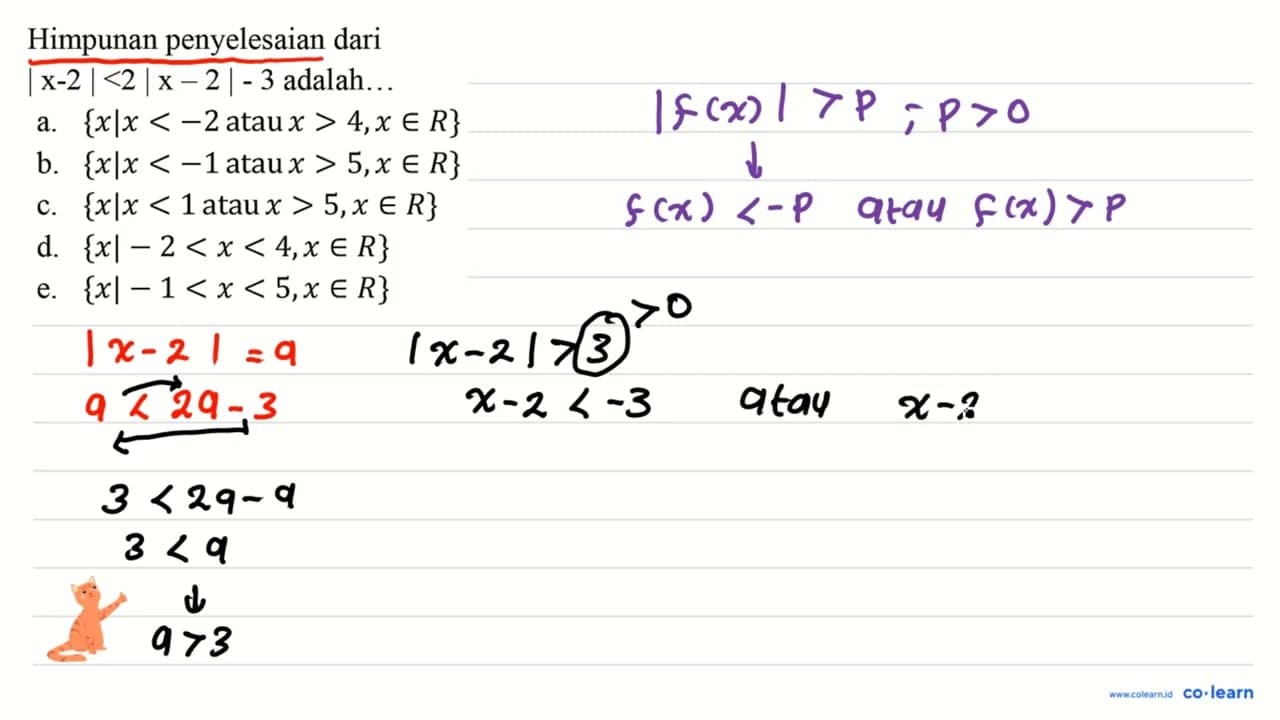 Himpunan penyelesaian dari
| x-2 | <2 | x – 2 | - 3 adalah…
a. {x|x < −2 atau x > 4, x ∈ R}
b. {x|x < −1 atau x > 5, x ∈ R}
c. {x|x < 1 atau x > 5, x ∈ R}
d. {x| − 2 < x < 4, x ∈ R}
e. {x| − 1 < x < 5, x ∈ R}
|f(x)| > p ; p > 0
↓
f(x) < -p atau f(x) > p
|x-2| = a
a < 2a-3
3 < 2a-a
3 < a
↓
a > 3
|x-2| > 3 > 0
x-2 < -3 atau x-2
www.colearn.id co·learn